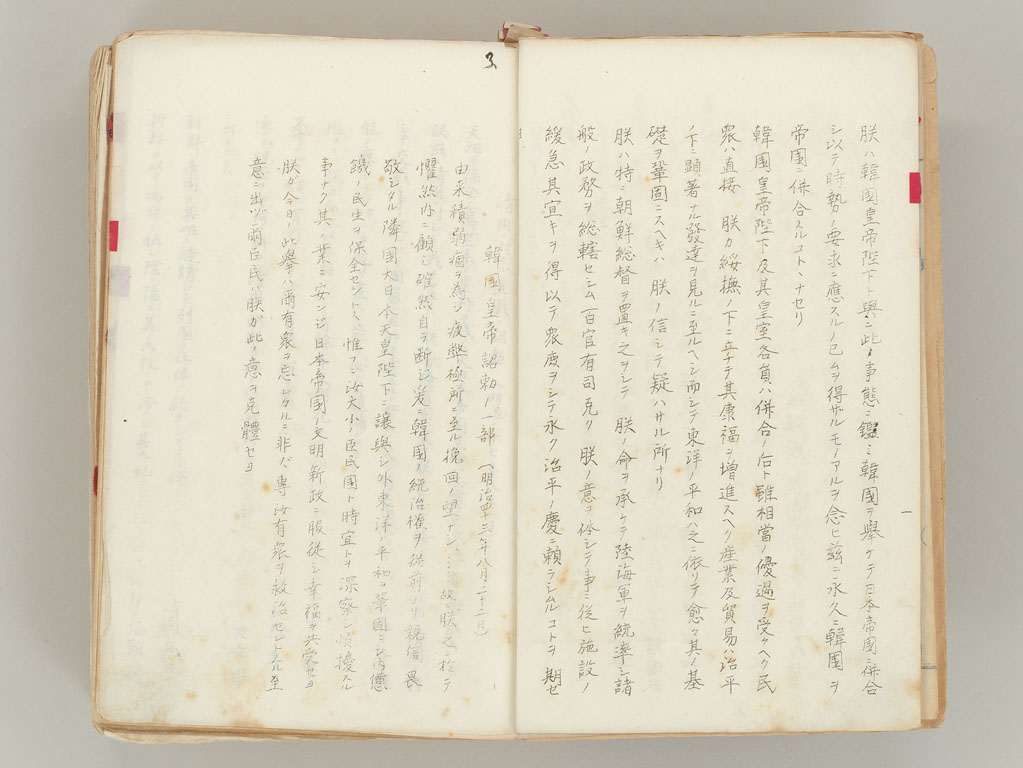 朕ハ韓國皇帝陛下ト與ニ此ノ事態ニ鑑ミ韓國ヲ擧ケテ日本帝國ニ併合
シ以テ時勢ノ要求ニ應スルノ已ムヲ得サルモノアルヲ念ヒ茲ニ永久ニ韓国ヲ
帝国ニ併合スルコトヽナセリ
韓国皇帝陛下及其皇室各員ハ併合ノ后ト雖相當ノ優遇ヲ受クヘク民
衆ハ直接 朕カ綏撫ノ下ニ立チテ其康福ヲ増進スヘク産業及貿易ハ治平
ノ下ニ顕著ナル發達ヲ見ルニ至ルヘシ而シテ東洋ノ平和ハ之ニ依リテ愈々其ノ基
礎ヲ鞏固ニスヘキハ 朕ノ信シテ疑ハサル所ナリ
朕ハ特ニ朝鮮総督ヲ置キ之ヲシテ 朕ノ命ヲ承ケテ陸海軍ヲ統率シ諸
般ノ政務ヲ総轄セシム百官有司克ク 朕ノ意ヲ体シテ事ニ従ヒ施設ノ
緩急其宜キヲ得以テ衆庶ヲシテ永ク治平ノ慶ニ頼ラシムルコトヲ期セ
3
韓國皇帝詔勅ノ一部 (明治四十三年八月二十二日)
由来積弱痼ヲ為シ疲弊極所ニ至ル挽回ノ望ナシ……故ニ朕ハ於テ
懼然内ニ顧ミ確然自ラ断シ茲ニ韓国ノ統治權ヲ従前ヨリ親信 畏
敬シタル隣国大日本天皇陛下ニ讓與シ外東洋ノ平和ヲ鞏固ニシ内
ノ民生ヲ保全セントス 惟フニ汝大小ノ臣民国ト時宜トヲ深察シ煩擾スル
事ナク其ノ業ニ安ンジ日本帝国ノ文明新政ニ服従シ幸福ヲ共受セヨ
朕カ今日ノ此擧ハ爾有衆ヲ忘レタルニ非ズ專汝有衆ヲ救治セントスル至
意ニ出ツ爾臣民ハ朕ガ此ノ意ヲ克體セヨ